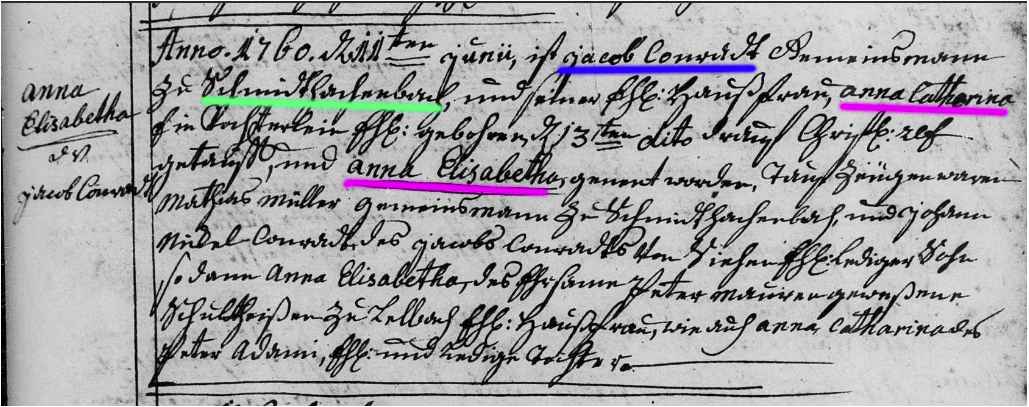 anna
Elisabetha
Jacob Conradt
Anno. 1760. d. 11ten Junii, ist Jacob Conradt Gemeinsmann
zu Schmidthachenbach, und seiner Ehl: Haußfrau, anna Catharina
Ein Töchterlein Ehl: gebohren, d. 13ten dito drauf Christl:
getaufft, und anna Elisabetha, genent worden, Tauf Zeügen waren
Mathias Müller gemeinsmann zu Schmidthachenbach, und Johann
Nickel Conradt, des Jacobs Conradts von Sien Ehl: lediger Sohn
so dann Anna Elisabetha, des Ehrsame Peter Mauren geweßene
Schultheißen zu Ehl: Haußfrau, wie auch anna Catharina des
Peter Adami, Ehl: und ledige Tochter